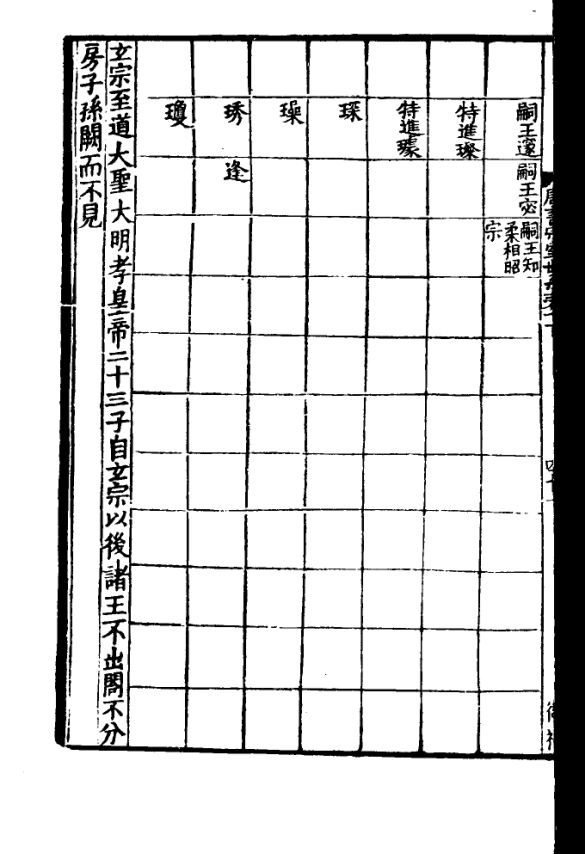 嗣王邃
嗣王宓
嗣王知
柔相昭
宗
特進璨
特進璩
琛
璪
琇
逢
瓊
玄宗至道大聖大明孝皇帝二十三子自玄宗以後諸王不出閤不分
房子孫闕而不見